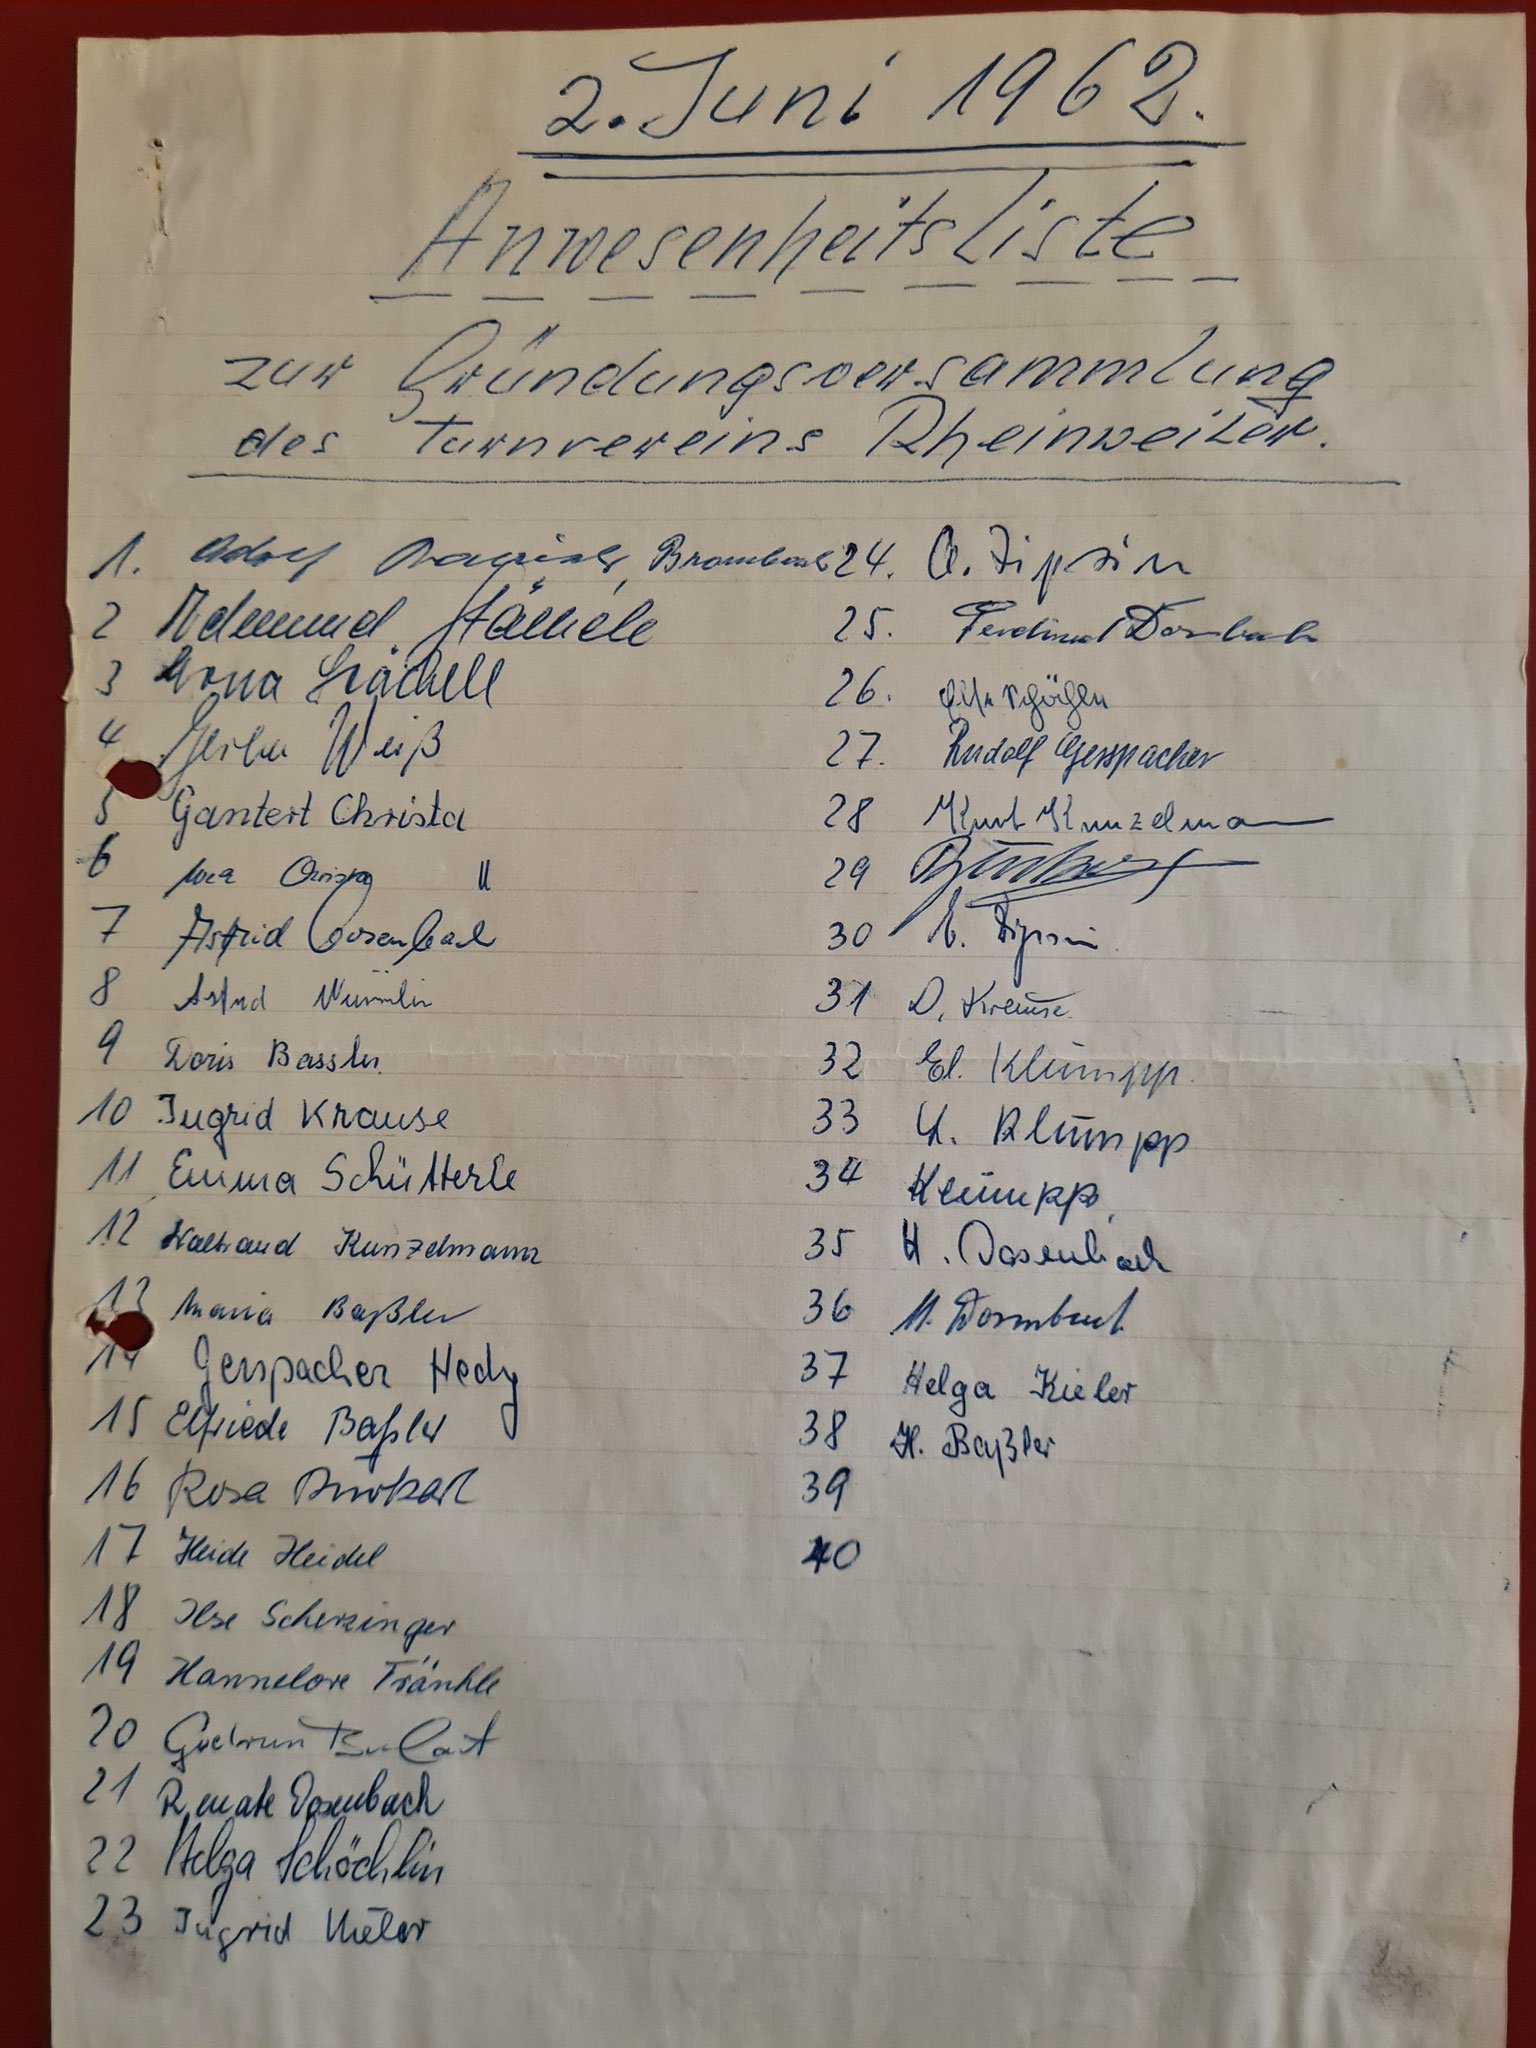 2. Juni 1962.
Anwesenheitsliste
zur Gründungsversammlung
des Turnvereins Rheinweiler.
1. Adolf
2
3
4 Weiß
5 Gantert Christa
6 "
7 Astrid Dosenbach
8 Astrid Nümlin
9 Doris Bassler
10 Ingrid Krause
11 Emma Schütterle
12 Waltraud Kunzelmann
13 Maria Baßler
14 Gerspacher Hedy
15 Elfriede Baßler
16 Rosa Burkart
17 Heide Heidel
18 Ilse Scherzinger
19 Hannelore Tränkle
20 Gudrun
21 Renate Dosenbach
22 Helga Schöchlin
23 Ingrid Kieler
24. O. Zipsin
25. Ferdinand Dornbach
26.
27. Rudolf Gerspacher
28 Kurt Kunzelmann
29
30 E. Zipsin
31 D. Krause
32 El. Klumpp
33 Klumpp
34 Klumpp
35 H. Dosenbach
36
37 Helga Kieler
38 H. Baßler
39
40